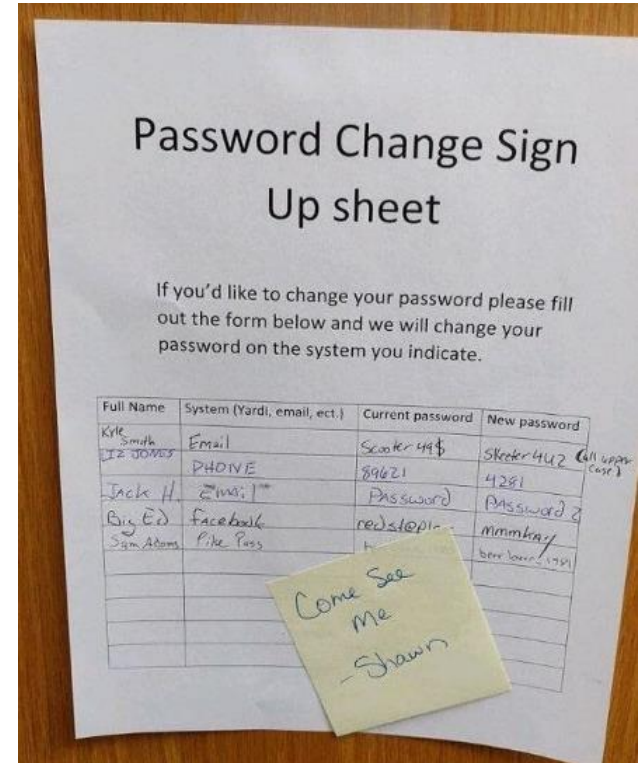 Password Change Sign
Up sheet
If you'd like to change your password please fill
out the form below and we will change your
password on the system you indicate.
Full Name System (Yardi, email, ect.) Current password New password
Kyle Smith Email Scooter 49$ Skeeter 442 (all upper case)
LIZ JONES PHONE 89621 4281
Jack H. Email PASSword PASSword 2
Big Ed facebook mmmkay
Sam Adams Pike Pass
Come See
Me
-Shawn